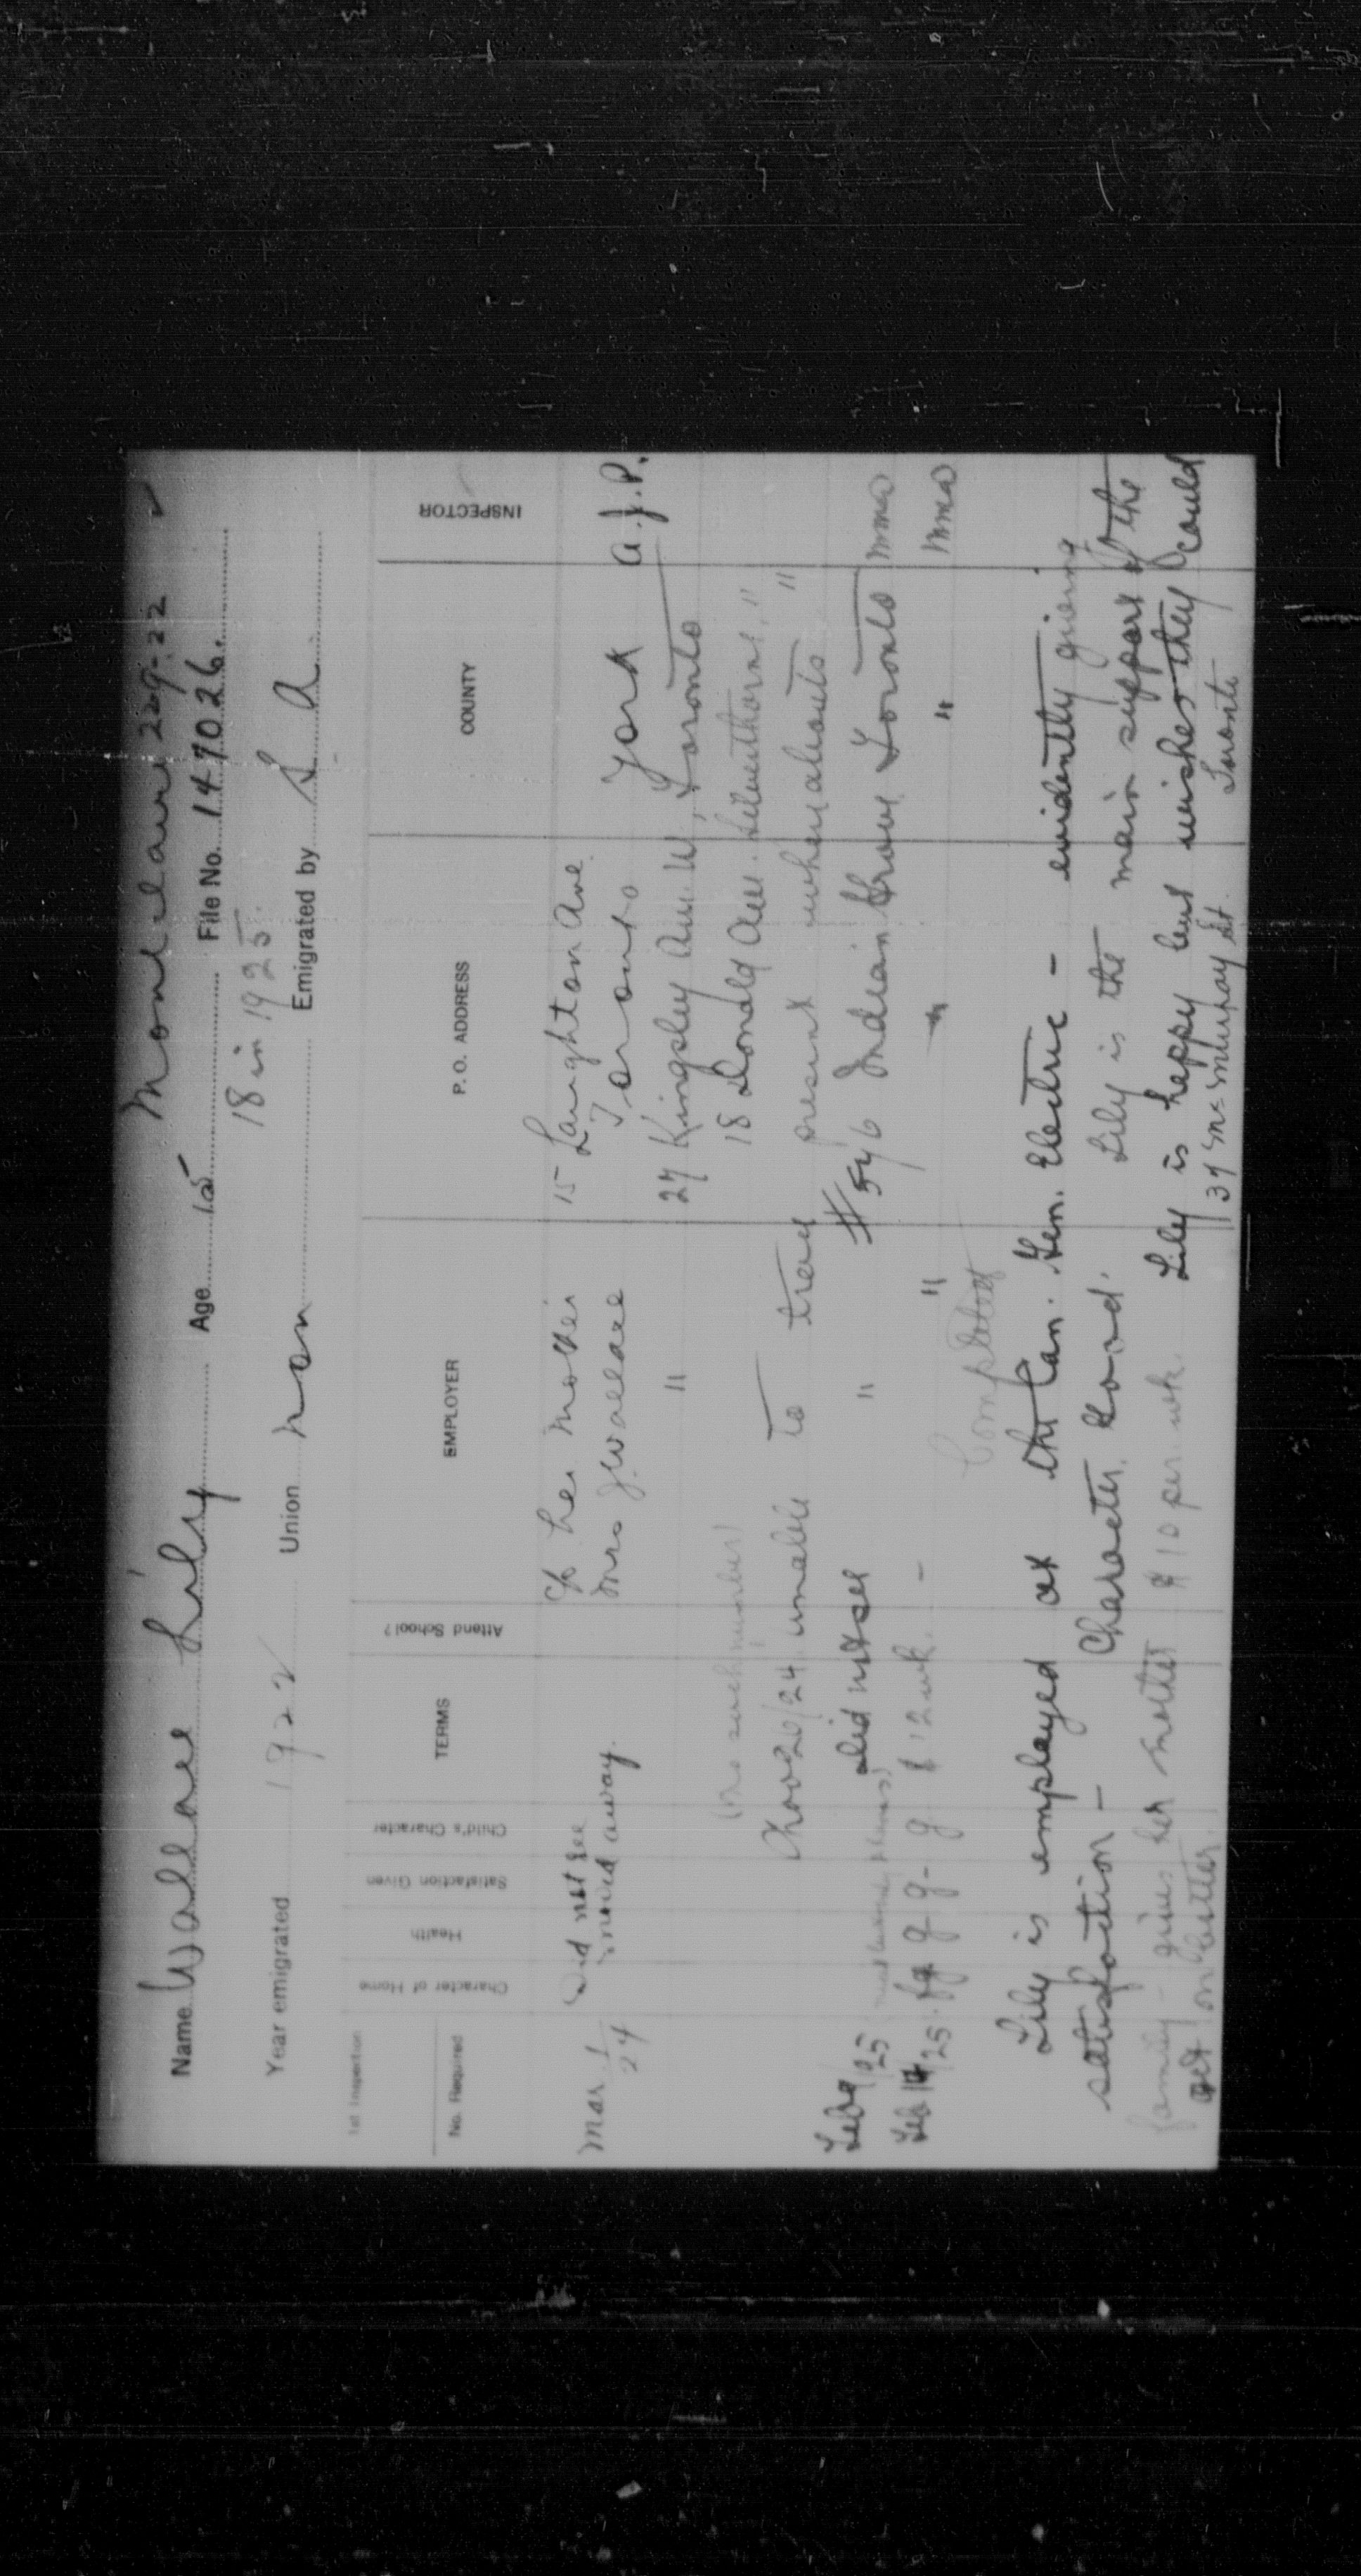 Montclare 22-9-22
Name Wallace Lily Age 15 File No. 147026.
18 in 1925.
Year emigrated 1922 Union non Emigrated by S A
1st Inspection
No. Required Character of Home Health Satisfaction Given Child's Character TERMS Attend School? EMPLOYER P. O. ADDRESS COUNTY INSPECTOR
Did not see c/o her mother 15 Laughton Ave
Mar 1/24 moved away. Mrs J Wallace Toronto York A.J.P.
" 27 Kingsley Ave W, Toronto
(no such number) 18 Donald Ave. "
Nov 20/24 unable to trace present whereabouts "
Feb 9/25 did not see " #546 Indian Grove Toronto MMO
Feb 19/25 fg g g - g $12 wk. - " " " MMO
Completed
Lily is employed at the Can. Gen. Electric - evidently giving
satisfaction - Character Good. Lily is the main support of the
family - gives her mother $10 per wk. Lily is happy but wishes they could
get on better. 37 McMurray St. Toronto